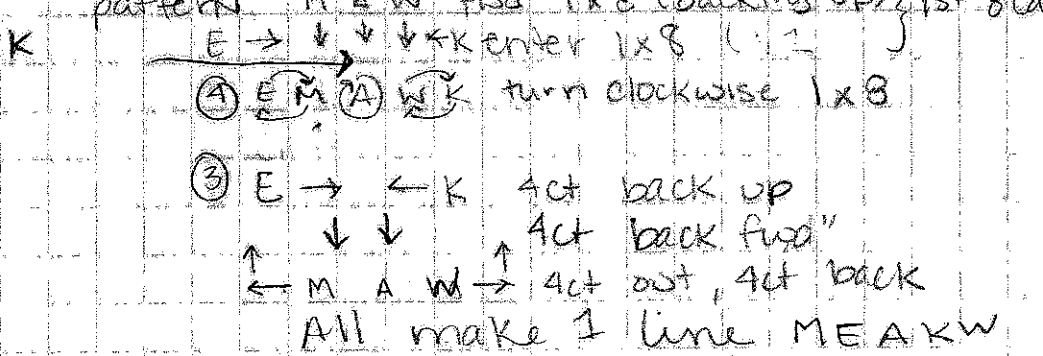 pattern M A W fwd 1x8 (backing up)
K E → ↓ ↓ ↓ ← K enter 1x8
④ E M A W K turn clockwise 1x8
③ E → ← K 4ct back up
↓ ↓ 4ct back fwd"
↑ ↑
← M A W → 4ct out, 4ct back
All make 1 line MEAKW